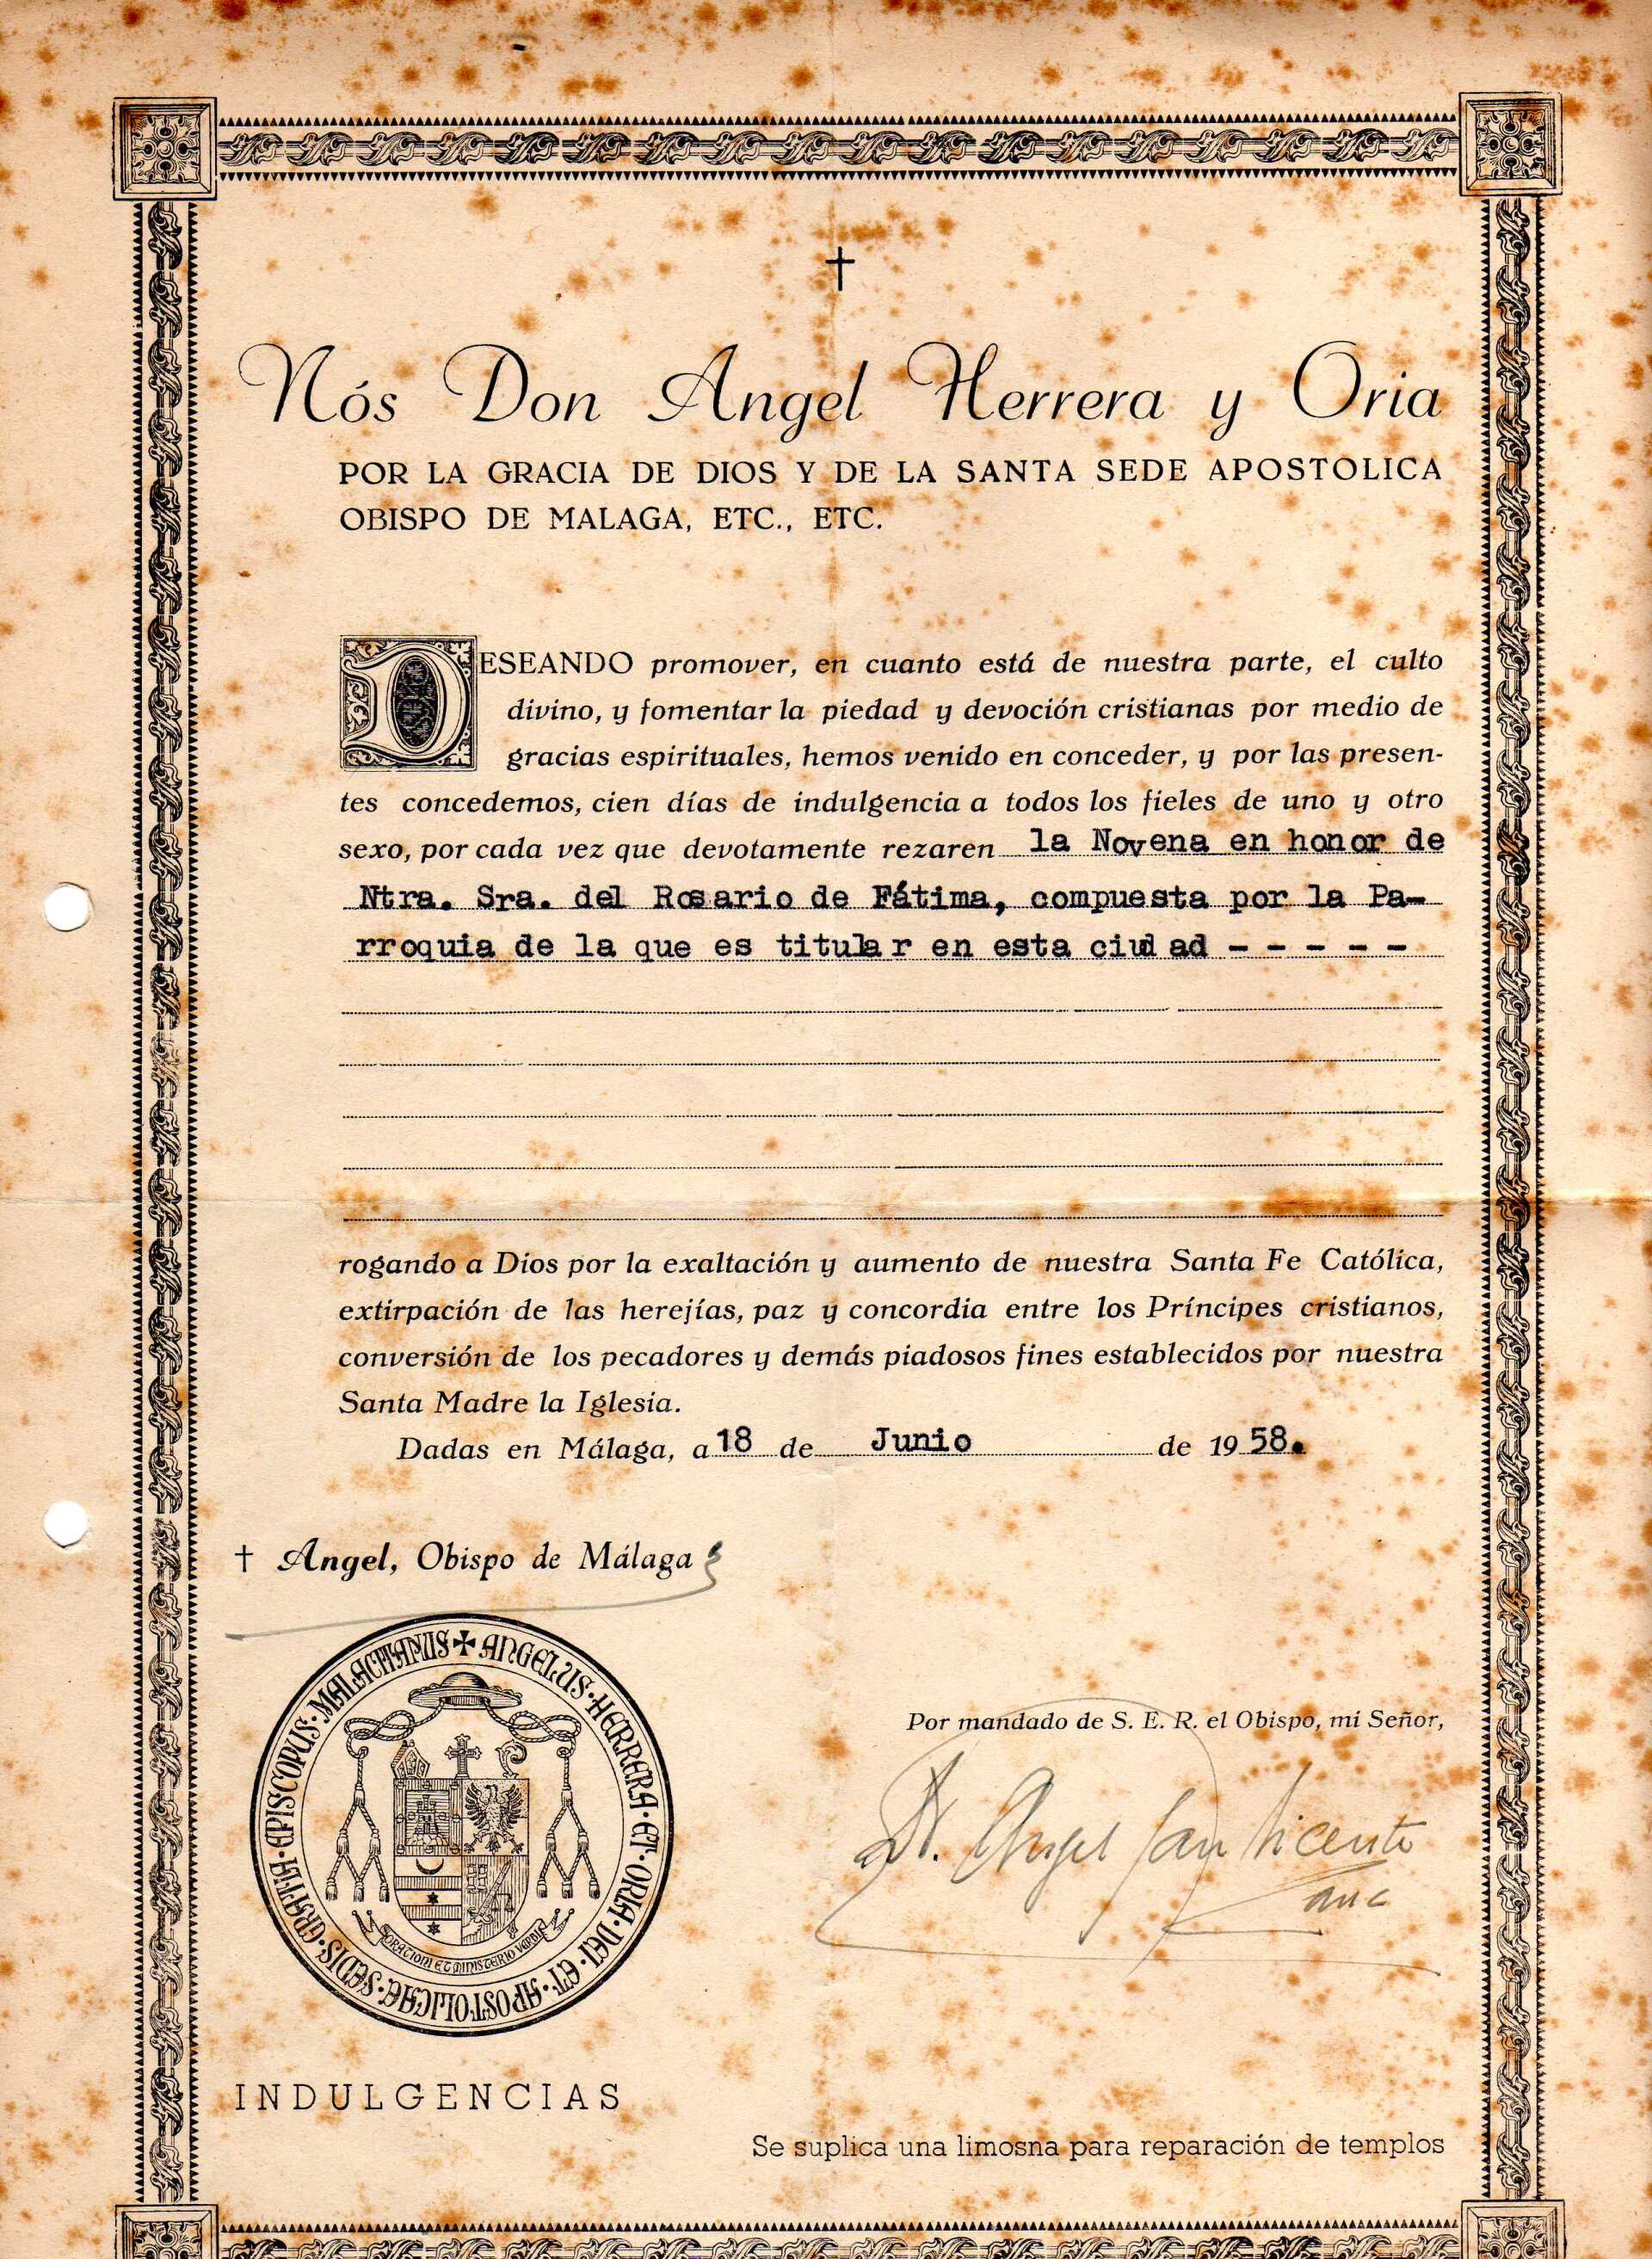 †
Nós Don Angel Herrera y Oria
POR LA GRACIA DE DIOS Y DE LA SANTA SEDE APOSTOLICA
OBISPO DE MALAGA, ETC., ETC.
DESEANDO promover, en cuanto está de nuestra parte, el culto
divino, y fomentar la piedad y devoción cristianas por medio de
gracias espirituales, hemos venido en conceder, y por las presen-
tes concedemos, cien días de indulgencia a todos los fieles de uno y otro
sexo, por cada vez que devotamente rezaren la Novena en honor de
Ntra. Sra. del Rosario de Fátima, compuesta por la Pa-
rroquia de la que es titular en esta ciudad - - - - -
rogando a Dios por la exaltación y aumento de nuestra Santa Fe Católica,
extirpación de las herejías, paz y concordia entre los Príncipes cristianos,
conversión de los pecadores y demás piadosos fines establecidos por nuestra
Santa Madre la Iglesia.
Dadas en Málaga, a 18 de Junio de 1958.
† Angel, Obispo de Málaga
✠ ANGELUS · HERRERA · ET · ORIA · DEI · ET · APOSTOLICAE · SEDIS · GRATIA · EPISCOPUS · MALACITANUS
ORATIONI ET MINISTERIO VERBI
Por mandado de S. E. R. el Obispo, mi Señor,
Dr. Angel San Vicente
INDULGENCIAS
Se suplica una limosna para reparación de templos